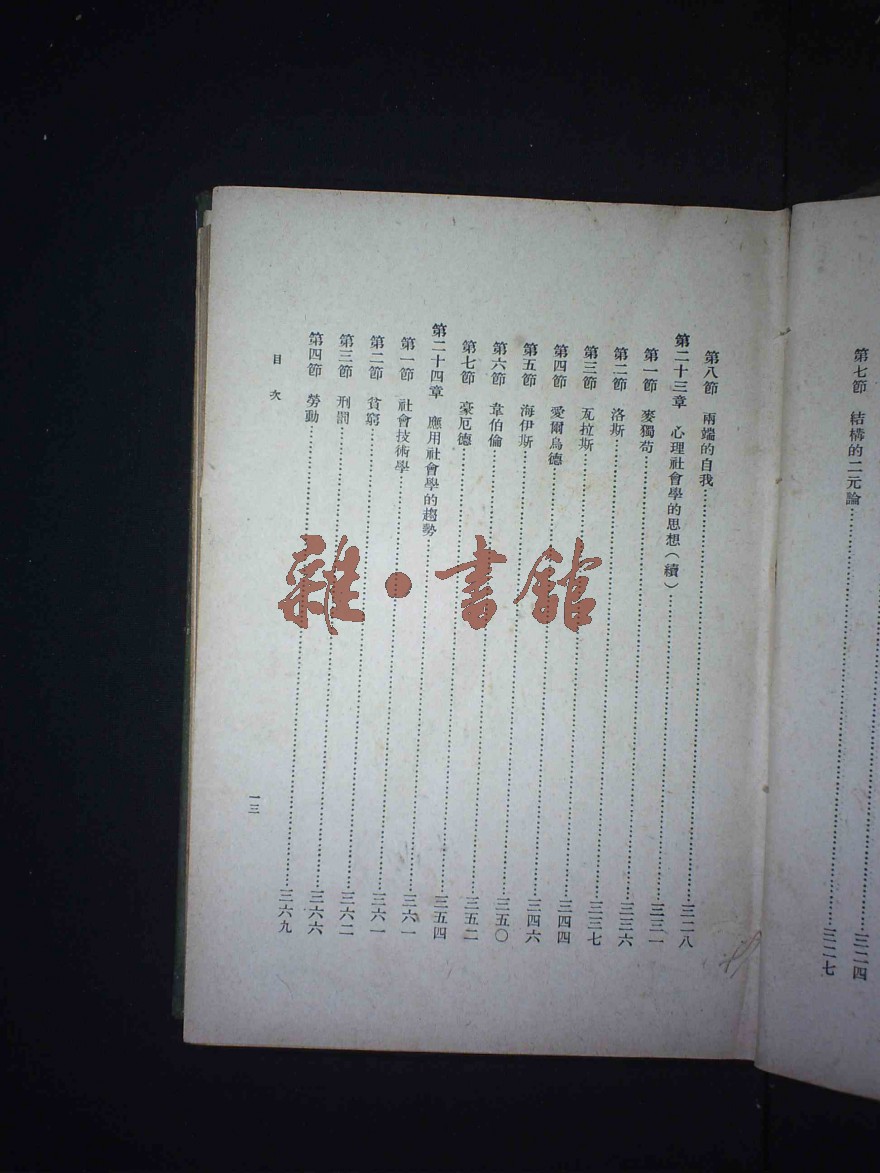 三二四
第七節　結構的二元論……三二七
第八節　兩端的自我……三二八
第二十三章　心理社會學的思想（續）……三三一
第一節　麥獨苟……三三六
第二節　洛斯……三三七
第三節　瓦拉斯……三四四
第四節　愛爾烏德……三四六
第五節　海伊斯……三五〇
第六節　韋伯倫……三五二
第七節　豪厄德……三五四
第二十四章　應用社會學的趨勢……三六一
第一節　社會技術學……三六一
第二節　貧窮……三六二
第三節　刑罰……三六六
第四節　勞動……三六九
目次
一三
雜・書館